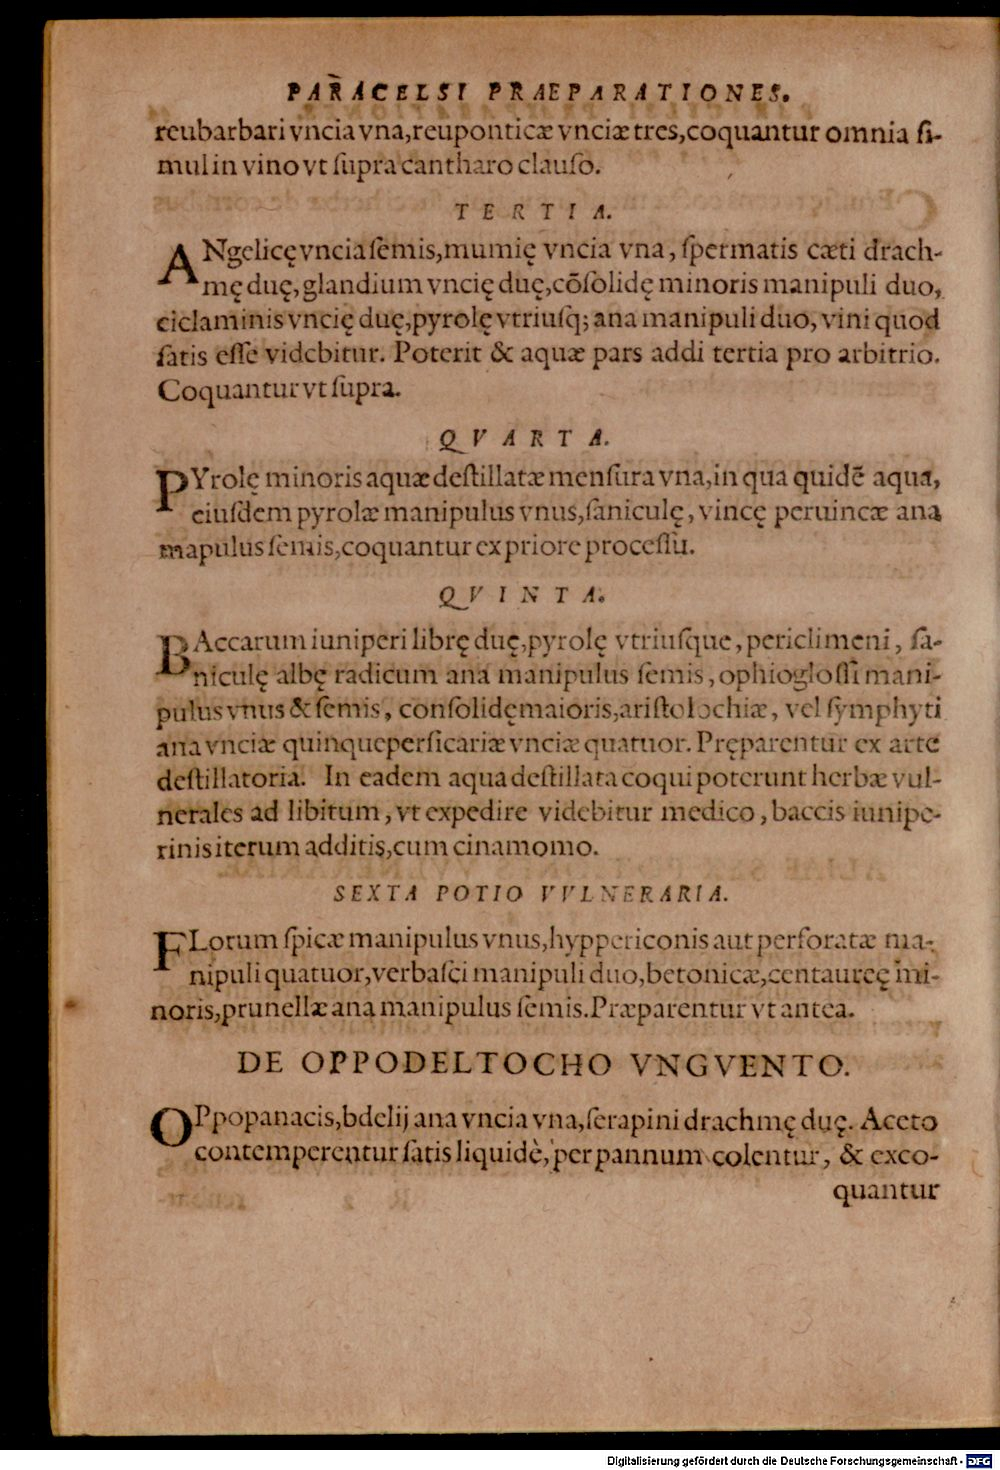 PARACELSI PRAEPARATIONES.
reubarbari vncia vna, reuponticæ vnciæ tres, coquantur omnia ſi-
mul in vino vt ſupra cantharo clauſo.
TERTIA.
ANgelicę vncia ſemis, mumię vncia vna, ſpermatis cæti drach-
mę duę, glandium vncię duę, cõſolidę minoris manipuli duo,
ciclaminis vncię duę, pyrolę vtriuſq; ana manipuli duo, vini quod
ſatis eſſe videbitur. Poterit & aquæ pars addi tertia pro arbitrio.
Coquantur vt ſupra.
QVARTA.
PYrolę minoris aquæ deſtillatæ menſura vna, in qua quidẽ aqua,
eiuſdem pyrolæ manipulus vnus, ſaniculę, vincę peruincæ ana
mapulus ſemis, coquantur ex priore proceſſu.
QVINTA.
BAccarum iuniperi librę duę, pyrolę vtriuſque, periclimeni, ſa-
niculę albę radicum ana manipulus ſemis, ophiogloſſi mani-
pulus vnus & ſemis, conſolidę maioris, ariſtolochiæ, vel ſymphyti
ana vnciæ quinque perſicariæ vnciæ quatuor. Pręparentur ex arte
deſtillatoria. In eadem aqua deſtillata coqui poterunt herbæ vul-
nerales ad libitum, vt expedire videbitur medico, baccis iunipe-
rinis iterum additis, cum cinamomo.
SEXTA POTIO VVLNERARIA.
FLorum ſpicæ manipulus vnus, hyppericonis aut perforatæ ma-
nipuli quatuor, verbaſci manipuli duo, betonicæ, centaureę mi-
noris, prunellæ ana manipulus ſemis. Præparentur vt antea.
DE OPPODELTOCHO VNGVENTO.
OPpopanacis, bdelij ana vncia vna, ſerapini drachmę duę. Aceto
contemperentur ſatis liquidè, per pannum colentur, & exco-
quantur
Digitalisierung gefördert durch die Deutsche Forschungsgemeinschaft - DFG